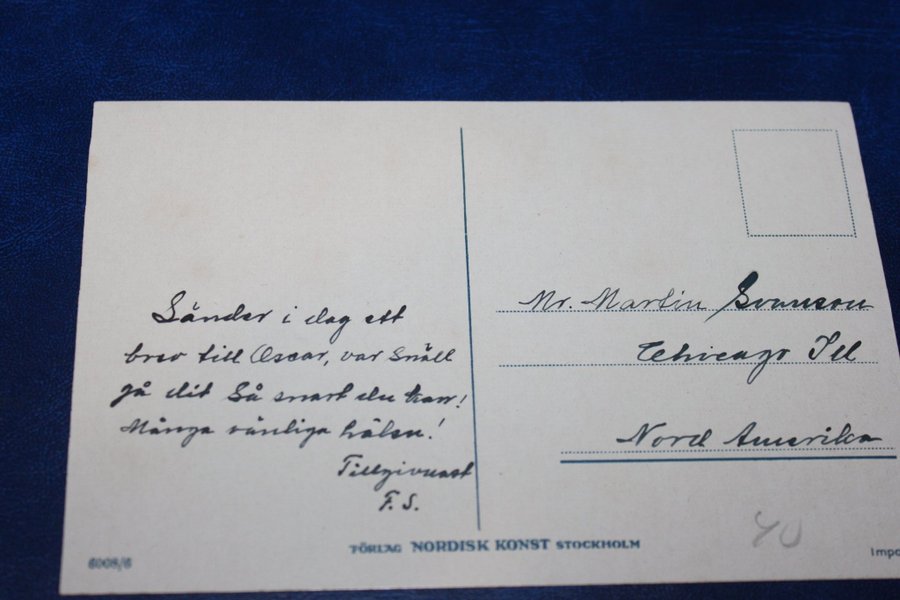 Sänder i dag ett
brev till Oscar, var Snäll
gå dit Så snart du kan!
Många vänliga hälsn!
Tillgivnast
F. S.
Mr. Martin Svanson
Chicago Ill
Nord Amerika
FÖRLAG NORDISK KONST STOCKHOLM
6008/6
Impo